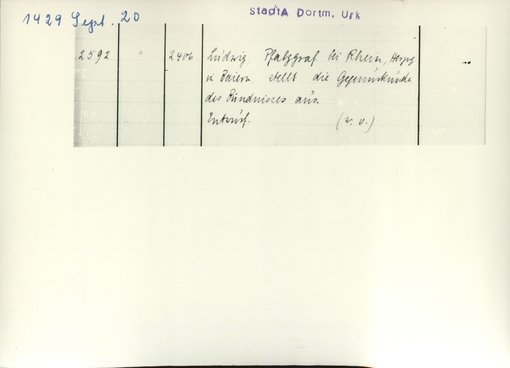 1429 Sept. 20
StadtA Dortm. Urk
2592 " 2406 Ludwig Pfalzgraf bei Rhein, Herzog
in Baiern stellt die Gegenurkunde
des Bündnisses aus.
Entwurf. (w. v.)